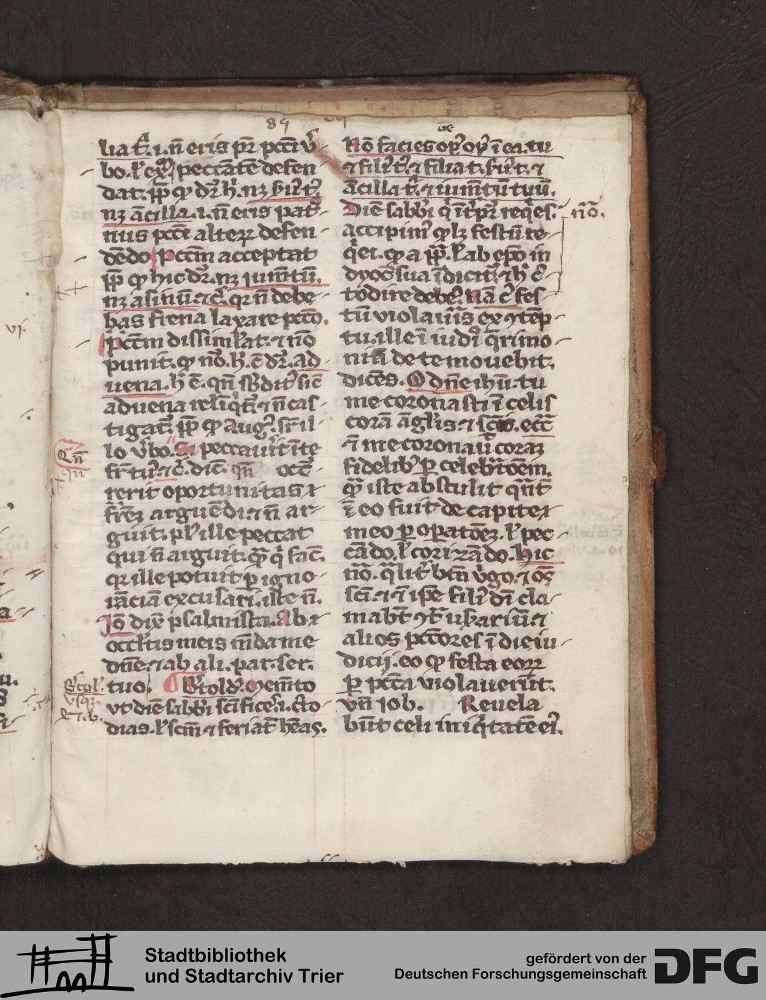 89
lia t̄. i. n̄ eris p̄r pcc̄i v̄
bo. l' ex̄. peccatē defen
dat. ꝓp̄ ꝙ dr̄ h̄. nꝫ s̄ūꝰ t̄.
nꝫ ācilla. i. n̄ eris pat
nus pcc̄i alteꝝ defen
dēdo. pcc̄m acceptat
ꝓp̄ ꝙ hic dr̄. nꝫ iumtū.
nꝫ asinū. ⁊c̄. qꝛ n̄ debe
bas frena laxare pcc̄o.
pcc̄m dissimlat. ⁊ nō
punit. ꝙ nō. h̄. ē dr̄. ad
uena. h̄ ē. qn̄ s̄bdit' sic̄
aduena relīqt̄. ⁊ n̄ cas
tigat'. ꝓp̄ ꝙ Augꝰ. sr̄ il
lo v̄bo. Si peccauīt ī te
fr̄ tuꝰ. ⁊c̄. diē. qn̄ occr̄
rerit oportunitas ⁊
fr̄em arguēdi. ⁊ n̄ ar
guit. plꝰ ille peccat
qui n̄ arguit. q̄ꝫ q̄ fac̄.
qꝛ ille potuit p igno
rāciam excusari. iste n̄.
Iō dix̄ psalmista. Ab
occltis meis mūda me
dn̄e. ⁊ ab ali. par. ser.
tuo. B̄toldꝰ. Memēto
vt diē sabb̄i sc̄ifices. i. c̄to
dias. l' sc̄m ⁊ feriat' h̄eas.
Nō facies opꝰ oꝑ ī ea. tu
⁊ filiꝰ t̄. ⁊ filia t. s̄uꝰ t̄. ⁊
ācilla t̄. ⁊ iumtū tuū.
Diē sabb̄i q̄ īt̄p̄r reqes.
accipimꝰ qlꝫ festū re
q̄ei. ꝙ a p̄p̄. l' ab ep̄o in
dyoc̄ sua īdicit. ⁊ h̄ c̄
todire debeꝰ. Nā c̄ fes
tū violaūis ex ↄtēp
tu. ille ī iudō q̄rimo
niā de te mouebit.
dicēs. O dn̄e ih̄u. tu
me coronasti ī celis
corā āglis ⁊ sc̄is. ecc̄
⁊ me coronauit coraꝫ
fidelibꝰ ꝑ celebrōem.
q̄ꝫ iste abstulit qn̄t
ī eo fuit de capite
meo ꝑ oꝑatōeꝫ. l' pec
cādo. l' corizādo. hic
nō. qlit' btm̄ v̄go. ⁊ oēs
sc̄i. ⁊ ⁊ ip̄e filiꝰ dī cla
mabt̄ ↄt̄ usarium ⁊
alios pcc̄ores ī die iu
dicij. eo ꝙ festa eoꝝ
ꝑ pcc̄a violauerūt.
vn̄ iob. Reuela
būt celi iniq̄tatē eiꝰ.
nō.
Stadtbibliothek
und Stadtarchiv Trier
gefördert von der
Deutschen Forschungsgemeinschaft
DFG